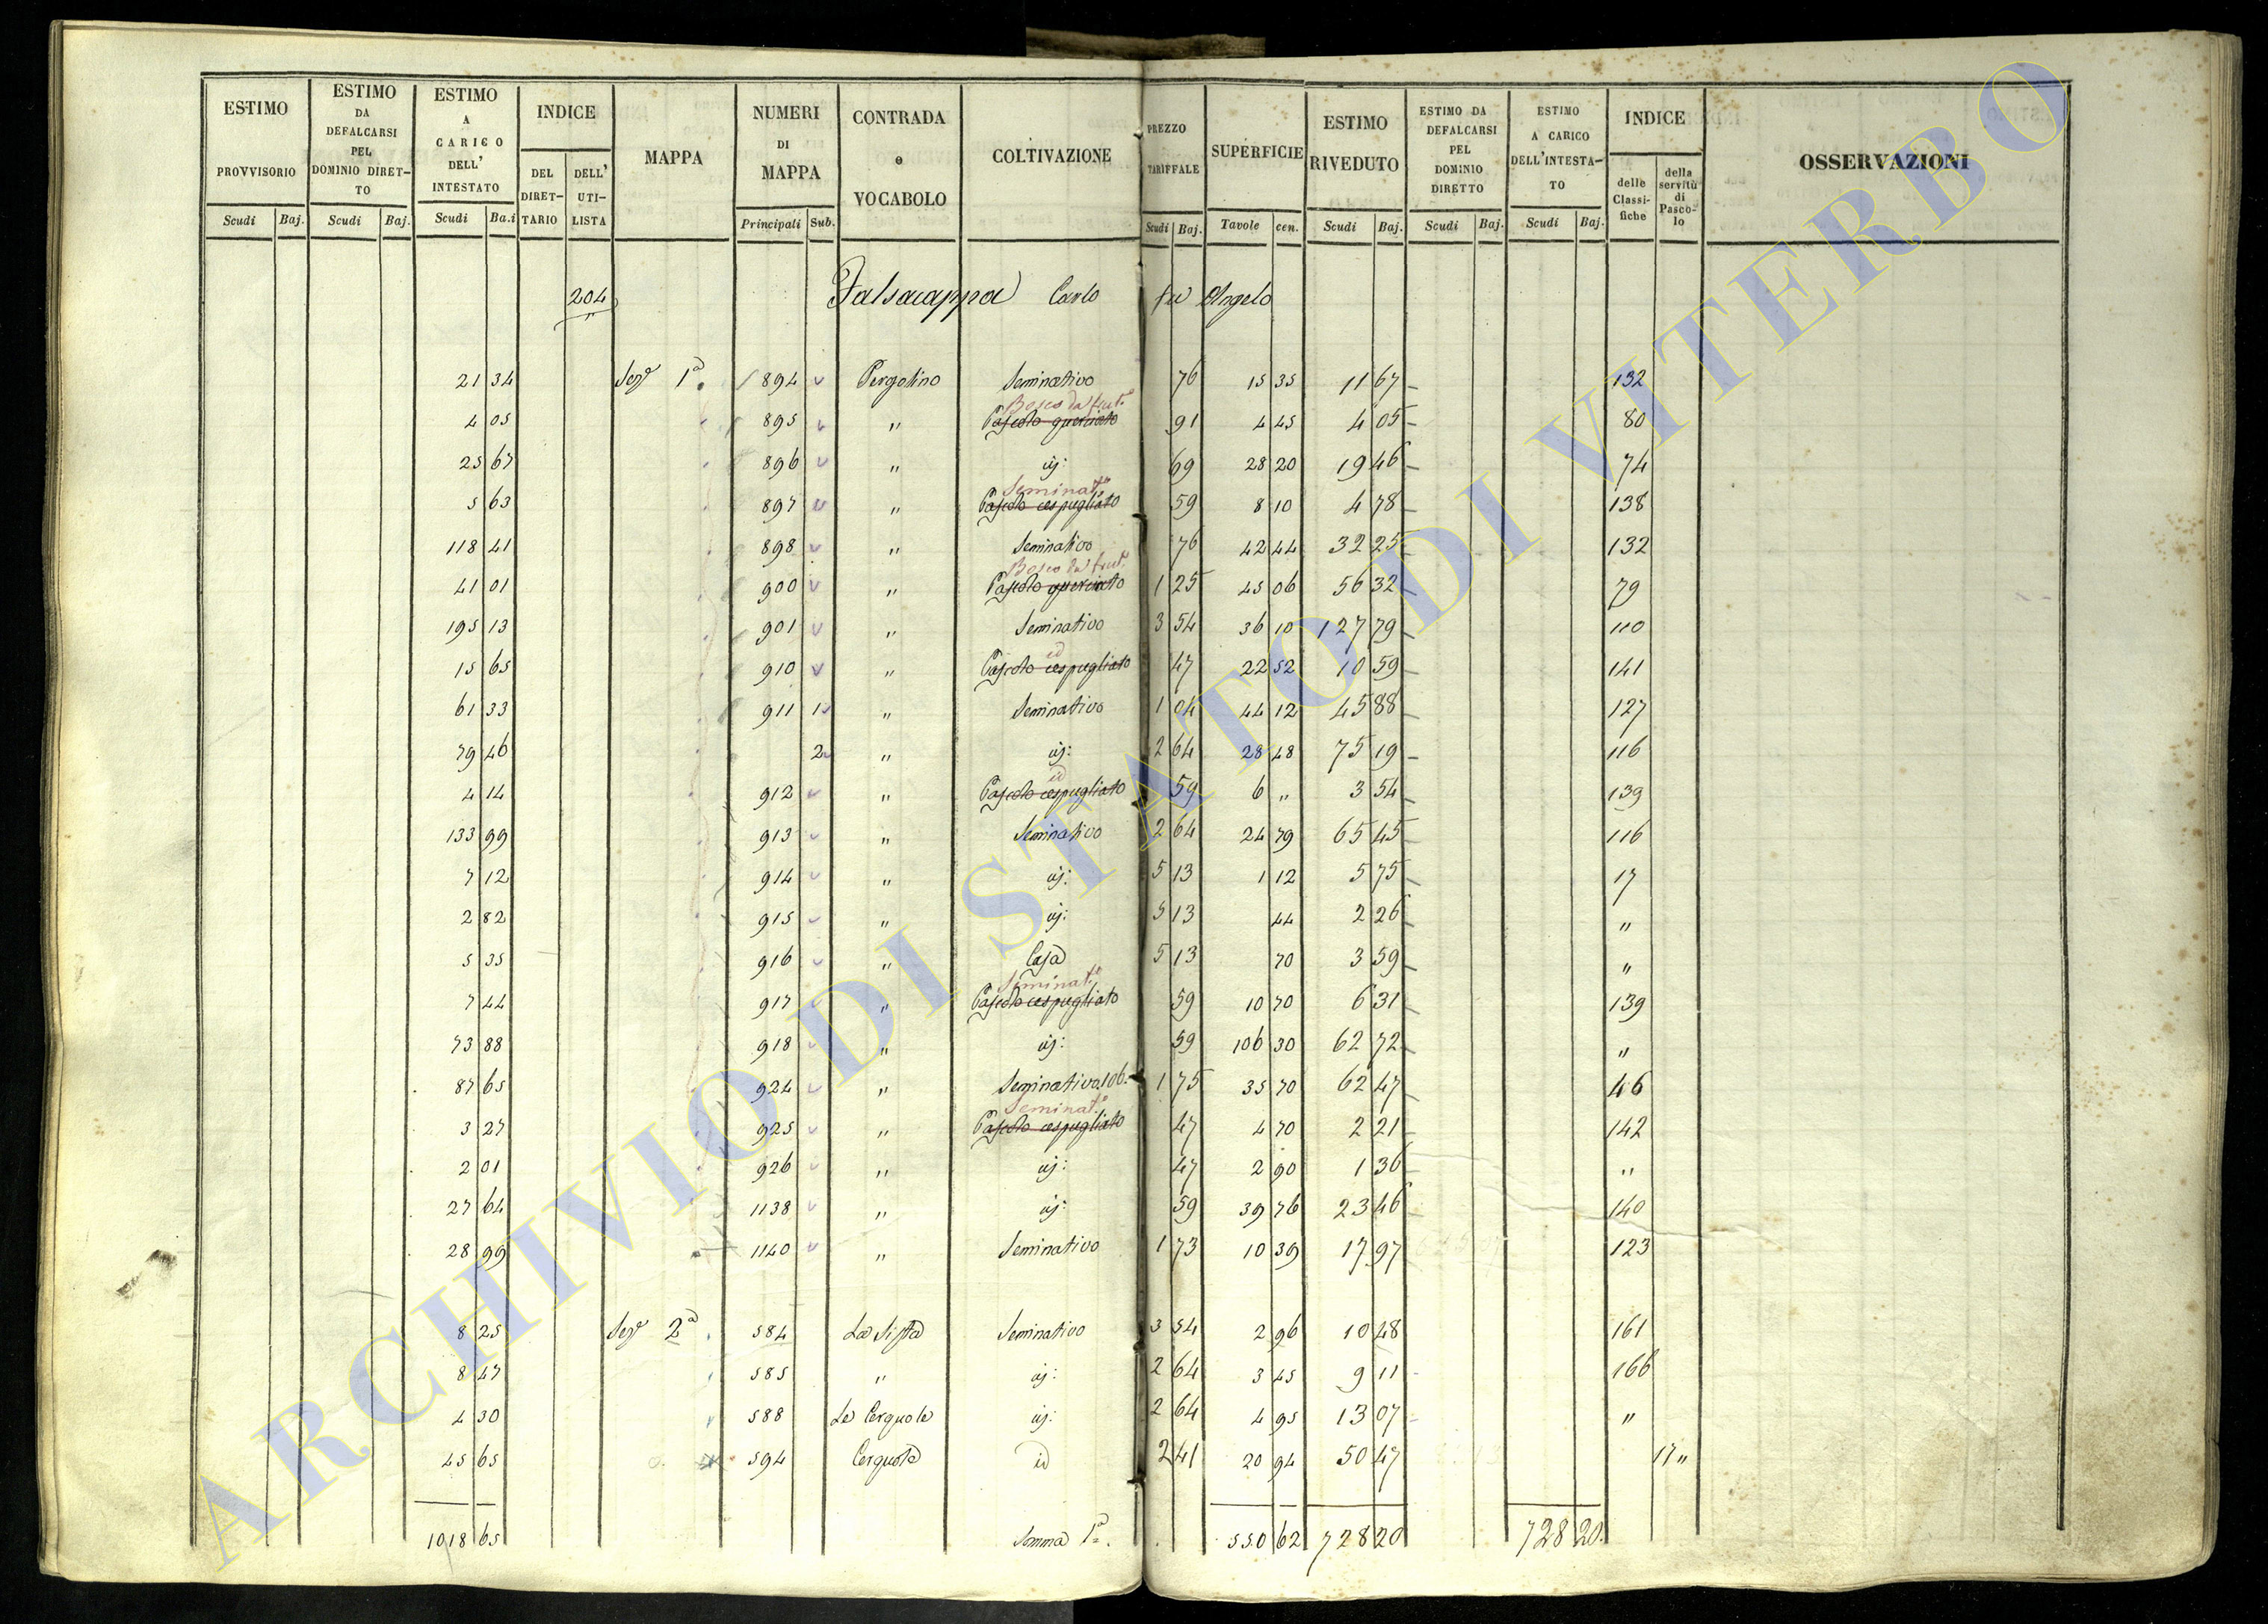 ESTIMO PROVVISORIO Scudi Baj.
ESTIMO DA DEFALCARSI PEL DOMINIO DIRET-TO Scudi Baj.
ESTIMO A CARICO DELL' INTESTATO Scudi Ba.i
INDICE DEL DIRET-TARIO DELL' UTI-LISTA
MAPPA
NUMERI DI MAPPA Principali Sub.
CONTRADA e VOCABOLO
COLTIVAZIONE
PREZZO TARIFFALE Scudi Baj.
SUPERFICIE Tavole cen.
ESTIMO RIVEDUTO Scudi Baj.
ESTIMO DA DEFALCARSI PEL DOMINIO DIRETTO Scudi Baj.
ESTIMO A CARICO DELL'INTESTA-TO Scudi Baj.
INDICE delle Classi-fiche della servitù di Pasco-lo
OSSERVAZIONI
204 Falsacappa Carlo fu Angelo
21 34 Sez.e 1a 894 Pergolino Seminativo 76 15 35 11 67 132
Bosco da frut.o
4 05 895 " Pascolo querciato 91 4 45 4 05 80
25 67 896 " id: 69 28 20 19 46 74
Seminat.o
5 63 897 " Pascolo cespugliato 59 8 10 4 78 138
118 41 898 " Seminativo 76 42 44 32 25 132
Bosco da frut.o
41 01 900 " Pascolo querciato 1 25 45 06 56 32 79
195 13 901 " Seminativo 3 54 36 10 127 79 110
id
15 65 910 " Pascolo cespugliato 47 22 52 10 59 141
61 33 911 1 " Seminativo 1 04 44 12 45 88 127
79 46 2 " id: 2 64 28 48 75 19 116
id
4 14 912 " Pascolo cespugliato 59 6 " 3 54 139
133 99 913 " Seminativo 2 64 24 79 65 45 116
7 12 914 " id: 5 13 1 12 5 75 17
2 82 915 " id: 5 13 44 2 26 "
5 35 916 " Casa 5 13 70 3 59 "
Seminat.o
7 44 917 " Pascolo cespugliato 59 10 70 6 31 139
73 88 918 " id: 59 106 30 62 72 "
87 65 924 " Seminativo 1 75 35 70 62 47 46
Seminat.o
3 27 925 " Pascolo cespugliato 47 4 70 2 21 142
2 01 926 " id: 47 2 90 1 36 "
27 64 1138 " id: 59 39 76 23 46 140
28 99 1140 " Seminativo 1 73 10 39 17 97 123
8 25 Sez.e 2a 584 La Sista Seminativo 3 54 2 96 10 48 161
8 47 585 " id: 2 64 3 45 9 11 166
4 30 588 Le Cerquole id: 2 64 4 95 13 07 "
45 65 594 Cerquola id 2 41 20 94 50 47 17 "
1018 65 Somma 1a. 550 62 728 20 728 20.
ARCHIVIO DI STATO DI VITERBO